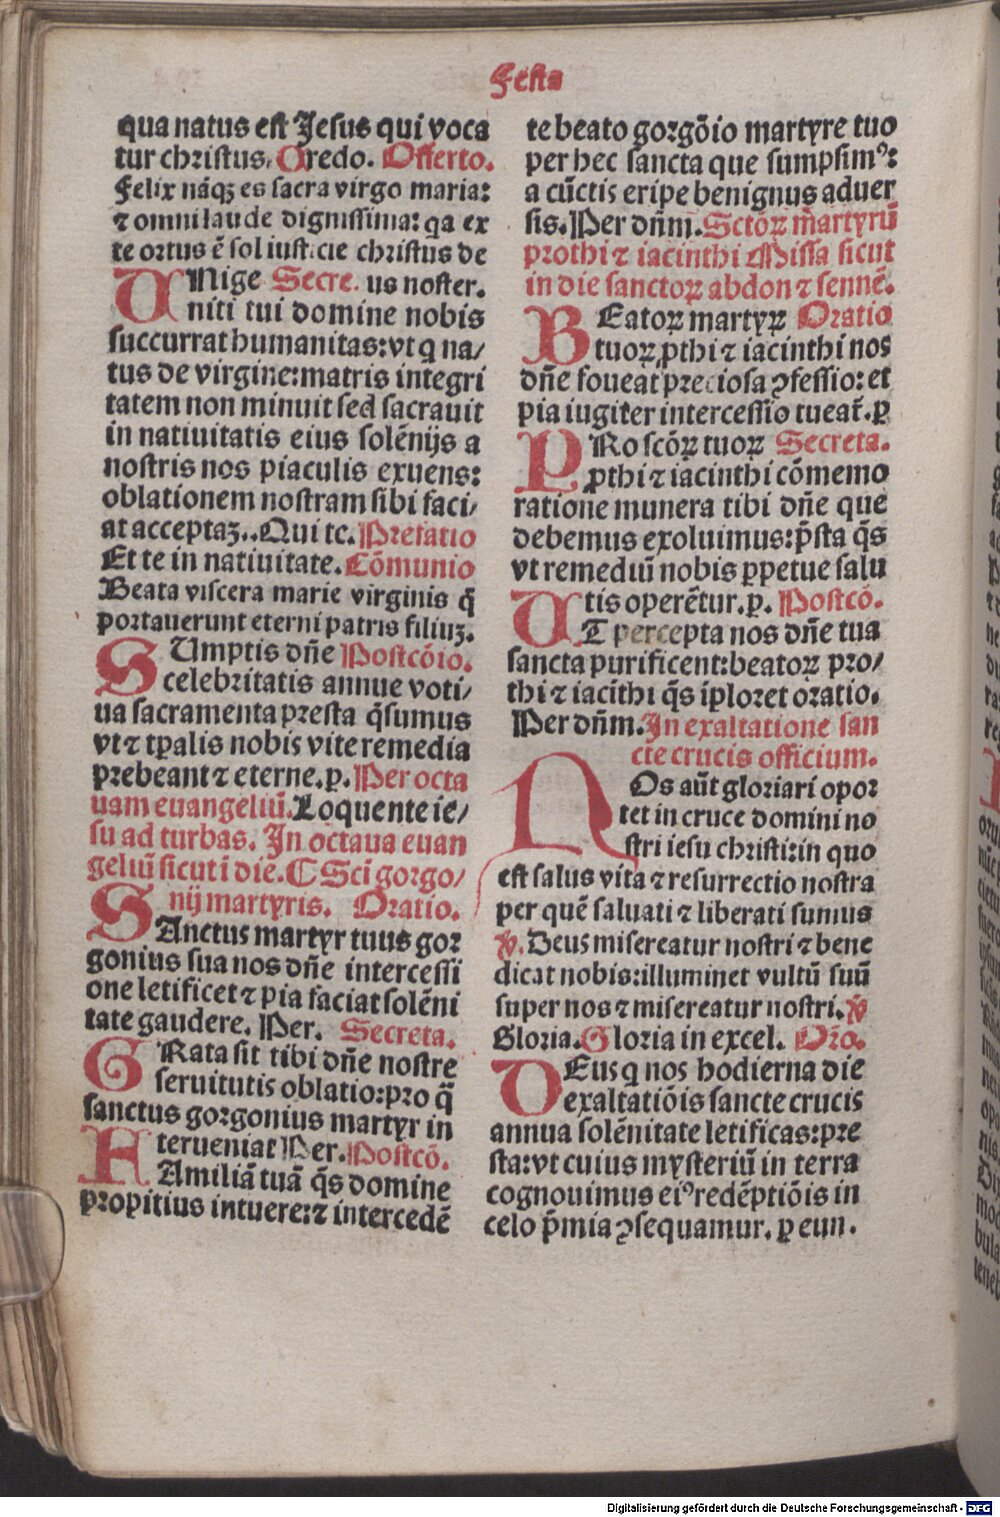 Festa
qua natus est Jesus qui voca
tur christus. Credo. Offerto.
Felix nãq̃ꝫ es sacra virgo maria:
⁊ omni laude dignissima: qa ex
te ortus ẽ sol iusticie christus de
UNige Secre. us noster.
niti tui domine nobis
succurrat humanitas: vt q na/
tus de virgine: matris integri
tatem non minuit sed sacrauit
in natiuitatis eius solẽnijs a
nostris nos piaculis exuens:
oblationem nostram sibi faci/
at acceptaꝫ.. Qui ⁊c. Prefatio
Et te in natiuitate. Cõmunio
Beata viscera marie virginis q̃
portauerunt eterni patris filiuꝫ.
SUmptis dñe Postcõio.
celebritatis annue voti/
ua sacramenta presta q̃sumus
vt ⁊ tp̃alis nobis vite remedia
prebeant ⁊ eterne. ꝑ. Per octa
uam euangeliũ. Loquente ie/
su ad turbas. In octaua euan
geliũ sicut ĩ die. C Scĩ gorgo/
nij martyris. Oratio.
SAnctus martyr tuus gor
gonius sua nos dñe intercessi
one letificet ⁊ pia faciat solẽni
tate gaudere. Per. Secreta.
GRata sit tibi dñe nostre
seruitutis oblatio: pro q̃
sanctus gorgonius martyr in
terueniat Per. Postcõ.
FAmiliã tuã q̃s domine
propitius intuere: ⁊ intercedẽ
te beato gorgõio martyre tuo
per hec sancta que sumpsimꝰ:
a cũctis eripe benignus aduer
sis. Per dñm. Sctõꝝ m̃artyrũ
prothi ⁊ iacinthi Missa sicut
in die sanctoꝝ abdon ⁊ sennẽ.
BEatoꝝ martyꝝ Oratio
tuoꝝ ꝓthi ⁊ iacinthi nos
dñe foueat preciosa ꝯfessio: et
pia iugiter intercessio tueat̃. ꝑ
PRo scõꝝ tuoꝝ Secreta.
ꝓthi ⁊ iacinthi cõmemo
ratione munera tibi dñe que
debemus exoluimus: p̃sta q̃s
vt remediũ nobis ꝑpetue salu
tis operẽtur. ꝑ. Postcõ.
UT percepta nos dñe tua
sancta purificent: beatoꝝ pro/
thi ⁊ iacĩthi q̃s ĩploret oratio.
Per dñm. In exaltatione san
cte crucis officium.
NOs aũt gloriari opor
tet in cruce domini no
stri iesu christi: in quo
est salus vita ⁊ resurrectio nostra
per quẽ saluati ⁊ liberati sumus
℣. Deus misereatur nostri ⁊ bene
dicat nobis: illuminet vultũ suũ
super nos ⁊ misereatur nostri. ℣
Gloria. Gloria in excel. Orõ.
DEus q nos hodierna die
exaltatiõis sancte crucis
annua solẽnitate letificas: pre
sta: vt cuius mysteriũ in terra
cognouimus eiꝰ redẽptiõis in
celo p̃mia ꝯsequamur. ꝑ eun.
Digitalisierung gefördert durch die Deutsche Forschungsgemeinschaft - DFG